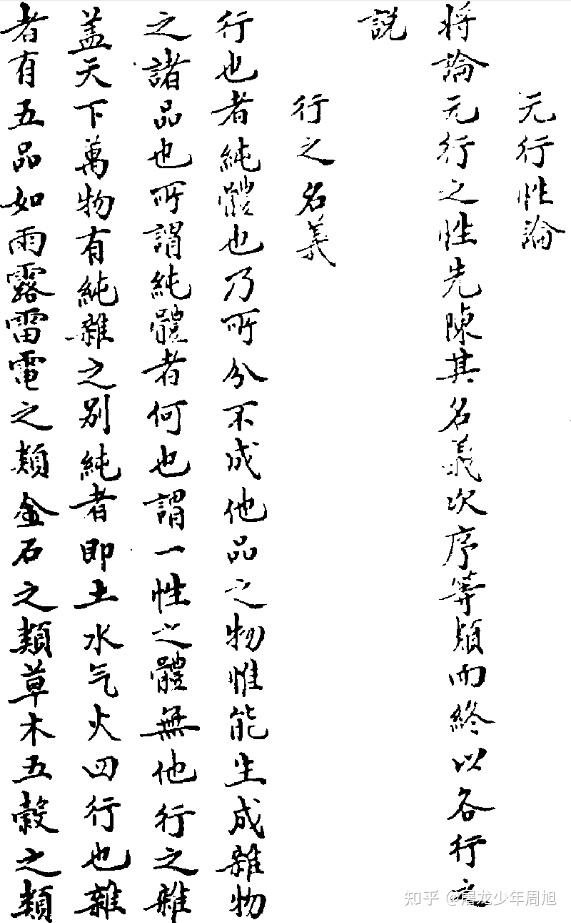 元行性論
將論元行之性先陳其名義次序等類而終以各行之
説
行之名義
行也者純體也乃所分不成他品之物惟能生成雜物
之諸品也所謂純體者何也謂一性之體無他行之雜
蓋天下萬物有純雜之别純者即土水气火四行也雜
者有五品如雨露雷電之類金石之類草木五穀之類
知乎 @屠龙少年周旭